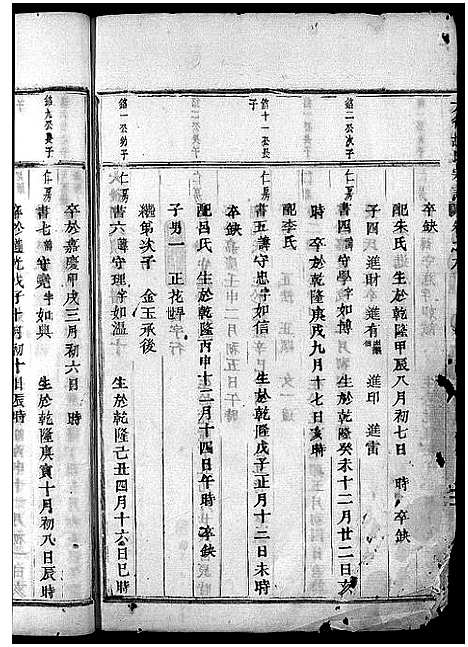 卒缺
配朱氏 生於乾隆甲辰八月初七日 時 卒缺
子四 進財 進有 進印 進雷
銘二公次子 仁房
書四 諱守學字如博 生於乾隆癸未十二月廿二日亥
時 卒於乾隆庚戌九月十七日亥時
配李氏
銘十一公長子 仁房
書五 諱守忠字如信 生於乾隆戊子正月十二日未時
卒缺 卒於嘉慶壬申二月初五日午時
配呂氏 生於乾隆丙申十二月十四日午時 卒缺
子男一 正花
繼弟次子 金玉承後
銘一公幼子 仁房
書六 諱守理字如溫 生於乾隆己丑四月十六日巳時
卒於嘉慶甲戌三月初六日 時
銘九公長子 仁房
書七 諱守 字如興 生於乾隆庚寅十月初八日辰時
卒於道光戊子十月初十日辰時